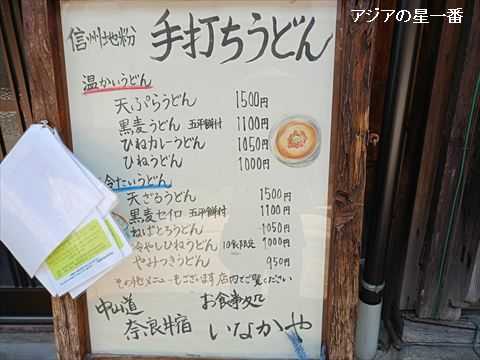 アジアの星一番
信州地粉 手打ちうどん
温かいうどん
天ぷらうどん 1500円
黒麦うどん 五平餅付 1100円
ひねカレーうどん 1050円
ひねうどん 1000円
冷たいうどん
天ざるうどん 1500円
黒麦セイロ 五平餅付 1100円
ねばとろうどん 1050円
冷やしひねうどん 10食限定 1000円
やみつきうどん 950円
その他メニューもございます 店内でご覧ください
中山道 お食事処
奈良井宿 いなかや